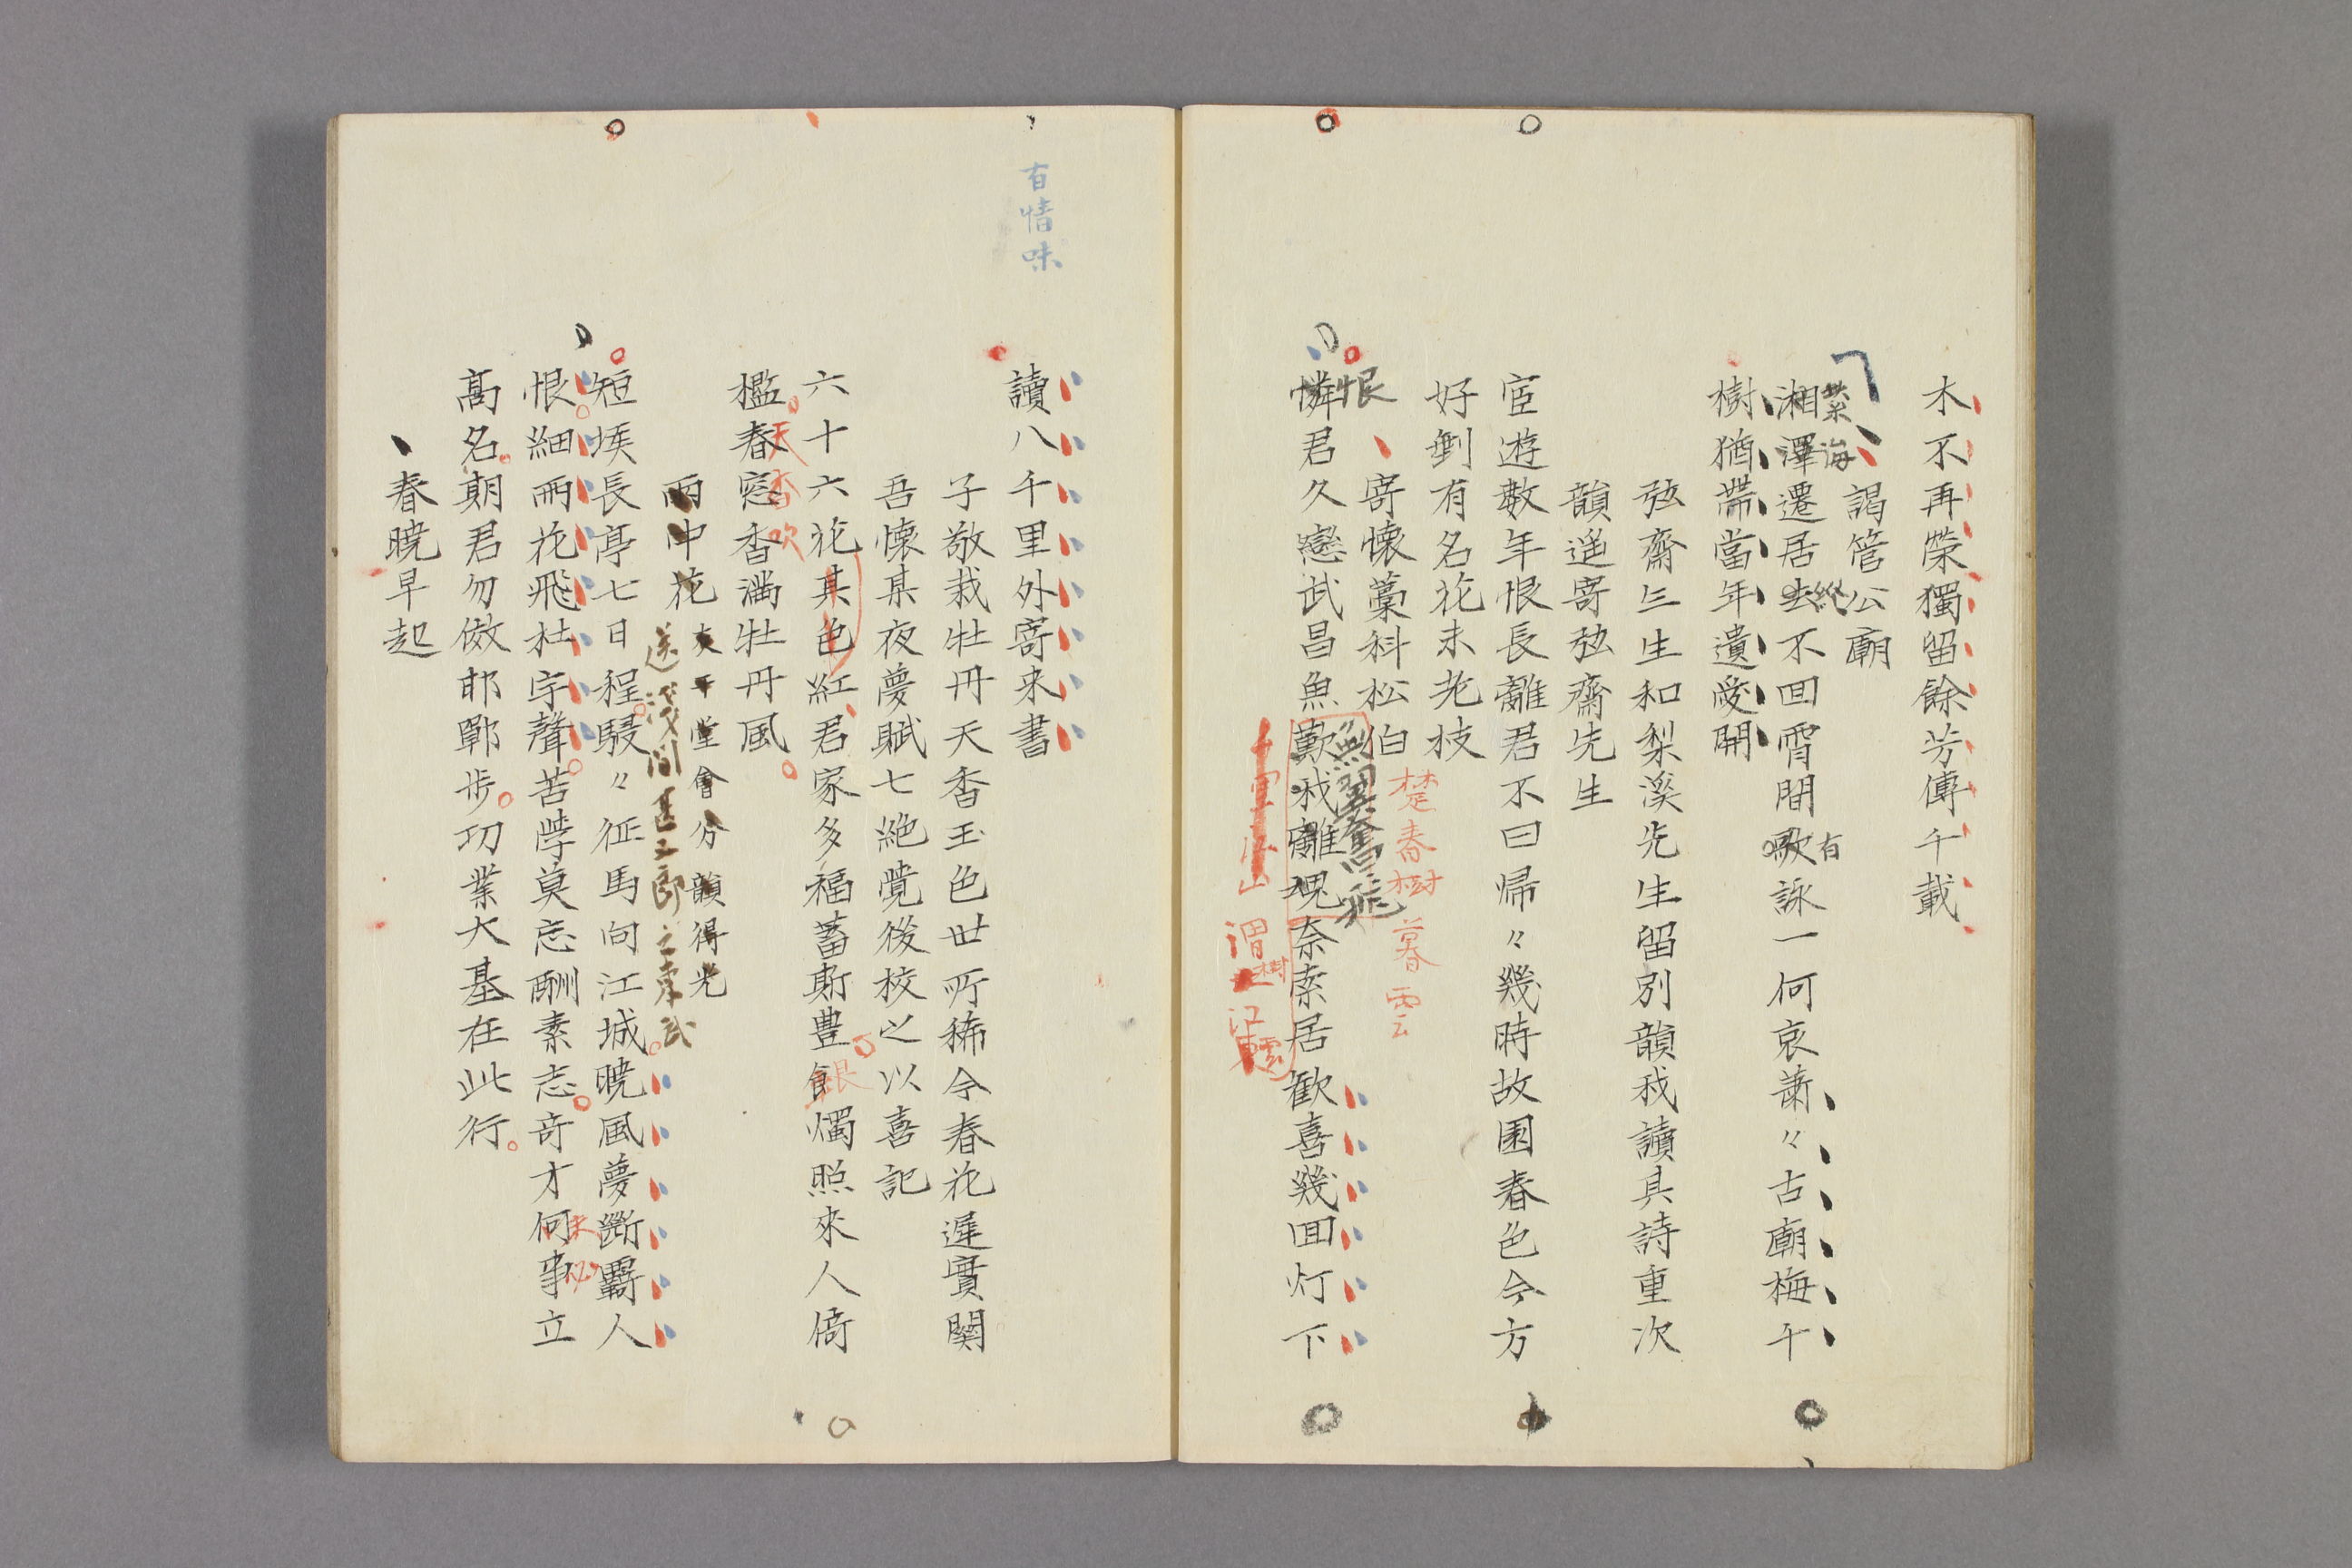 木不再榮獨留餘芳傳千載
謁管公廟
紫海
湘澤遷居去不回霄間歌詠一何哀蕭〻古廟梅千
縱
有
樹猶帶當年遺愛開
弦齋三生和梨溪先生留別韻我讀其詩重次
韻遥寄弦齋先生
宦遊數年恨長離君不曰帰〻幾時故園春色今方
好剩有名花未老枝
寄懷藁科松伯
楚春樹暮雲
恨
奮飛
憐君久戀武昌魚歎我離魂奈索居歓喜幾回灯下
渭樹江雲
有情味
讀八千里外寄来書
子敬栽牡丹天香玉色世所稀今春花遲實関
吾懐某夜夢賦七絶覺後校之以喜記
六十六花其色紅君家多福蓄斯豊銀燭照來人倚
檻春窓香満牡丹風
天香吹
雨中花
太平堂會分韻得光
送浅間甚五郎之東武
短堠長亭七日程駸〻征馬向江城曉風夢斷羇人
恨細雨花飛杜宇聲苦學莫忘酬素志竒才何事立
未必
髙名期君勿倣邯鄲歩功業大基在此行
春曉早起